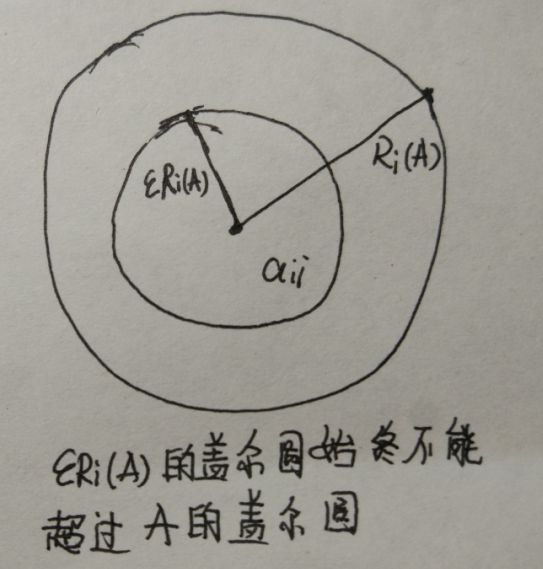 Ri(A)
εRi(A)
aii
εRi(A) 的盖尔圆始终不能
超过 A 的盖尔圆